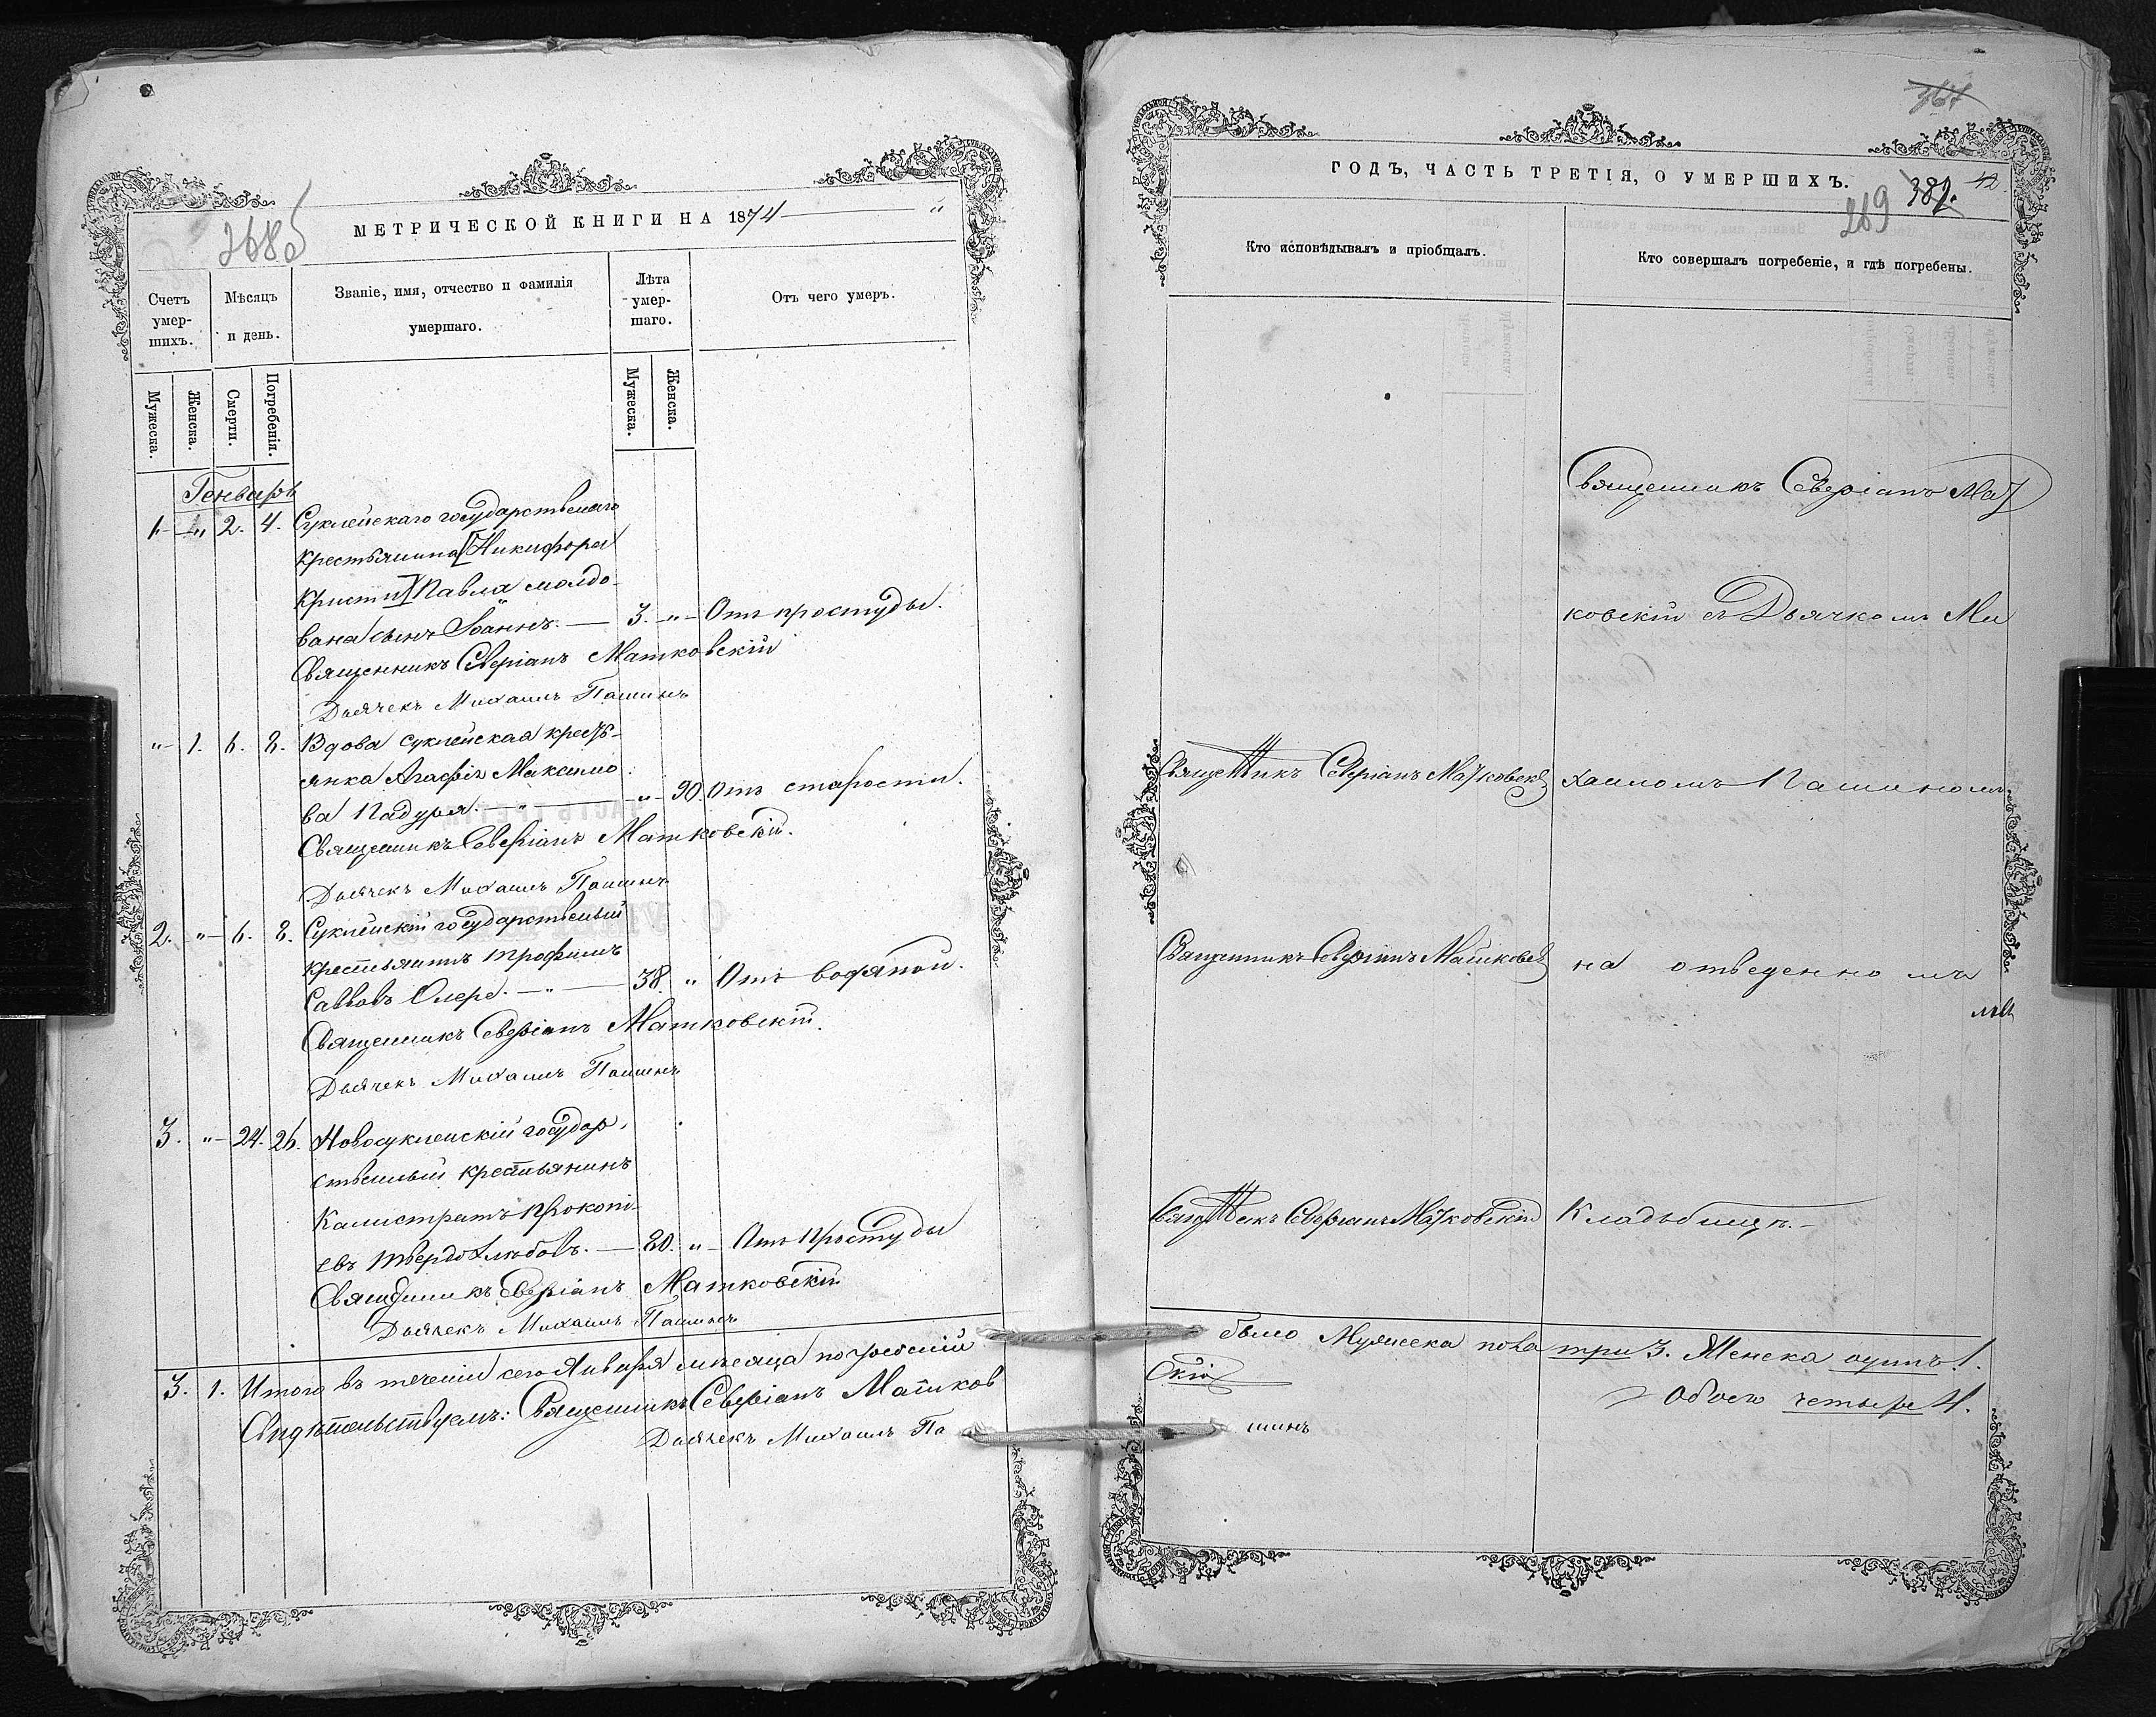 268 об
МЕТРИЧЕСКОЙ КНИГИ НА 1874 — "
Счетъ умер- шихъ.
Мѣсяцъ и день.
Званіе, имя, отчество и фамилія умершаго.
Лѣта умер- шаго.
Отъ чего умеръ.
Мужеска.
Женска.
Смерти.
Погребенія.
Мужеска.
Женска.
Генварь
1. — " 2. 4. Суклейскаго государственнаго
крестьянина [Никифора
Кристи] Павла молдо-
вана сынъ Іоаннъ. — 3. — " — Отъ простуды.
Священникъ Северіанъ Матковскій
Дьячекъ Михаилъ Пашинъ
" — 1. 6. 8. Вдова суклейская кресть-
янка Агафія Максимо-
ва Падуря. — " — " — 90. Отъ старости.
Священникъ Северіанъ Матковскій.
Дьячекъ Михаилъ Пашинъ
2. " — 6. 8. Суклейскій государственный
крестьянинъ Трофимъ
Саввовъ Олере. — " — 38. " Отъ водяной.
Священникъ Северіанъ Матковскій.
Дьячекъ Михаилъ Пашинъ
3. " — 24. 26. Новосуклейскій государ-
ственный крестьянинъ
Калистратъ Прокопі-
евъ Твердохлѣбовъ. — 80. " — Отъ простуды
Священникъ Северіанъ Матковскій
Дьячекъ Михаилъ Пашинъ
3. 1. Итого въ теченіи сего Января мѣсяца
Свидѣтельствуемъ: Священникъ Северіанъ Матков
Дьячекъ Михаилъ Па
367
ГОДЪ, ЧАСТЬ ТРЕТІЯ, О УМЕРШИХЪ.
269 382. 42
Кто исповѣдывалъ и пріобщалъ.
Кто совершалъ погребеніе, и гдѣ погребены.
Священникъ Северіанъ Мат
ковскій съ Дьячкомъ Ми
Священникъ Северіанъ Матковскій
хаиломъ Пашинымъ
Священникъ Северіанъ Матковскій
на отведенномъ
Священникъ Северіанъ Матковскій
Кладбищѣ. —
было Мужеска пола три 3. Женска одинъ 1.
скій
Обоего четыре 4.
шинъ